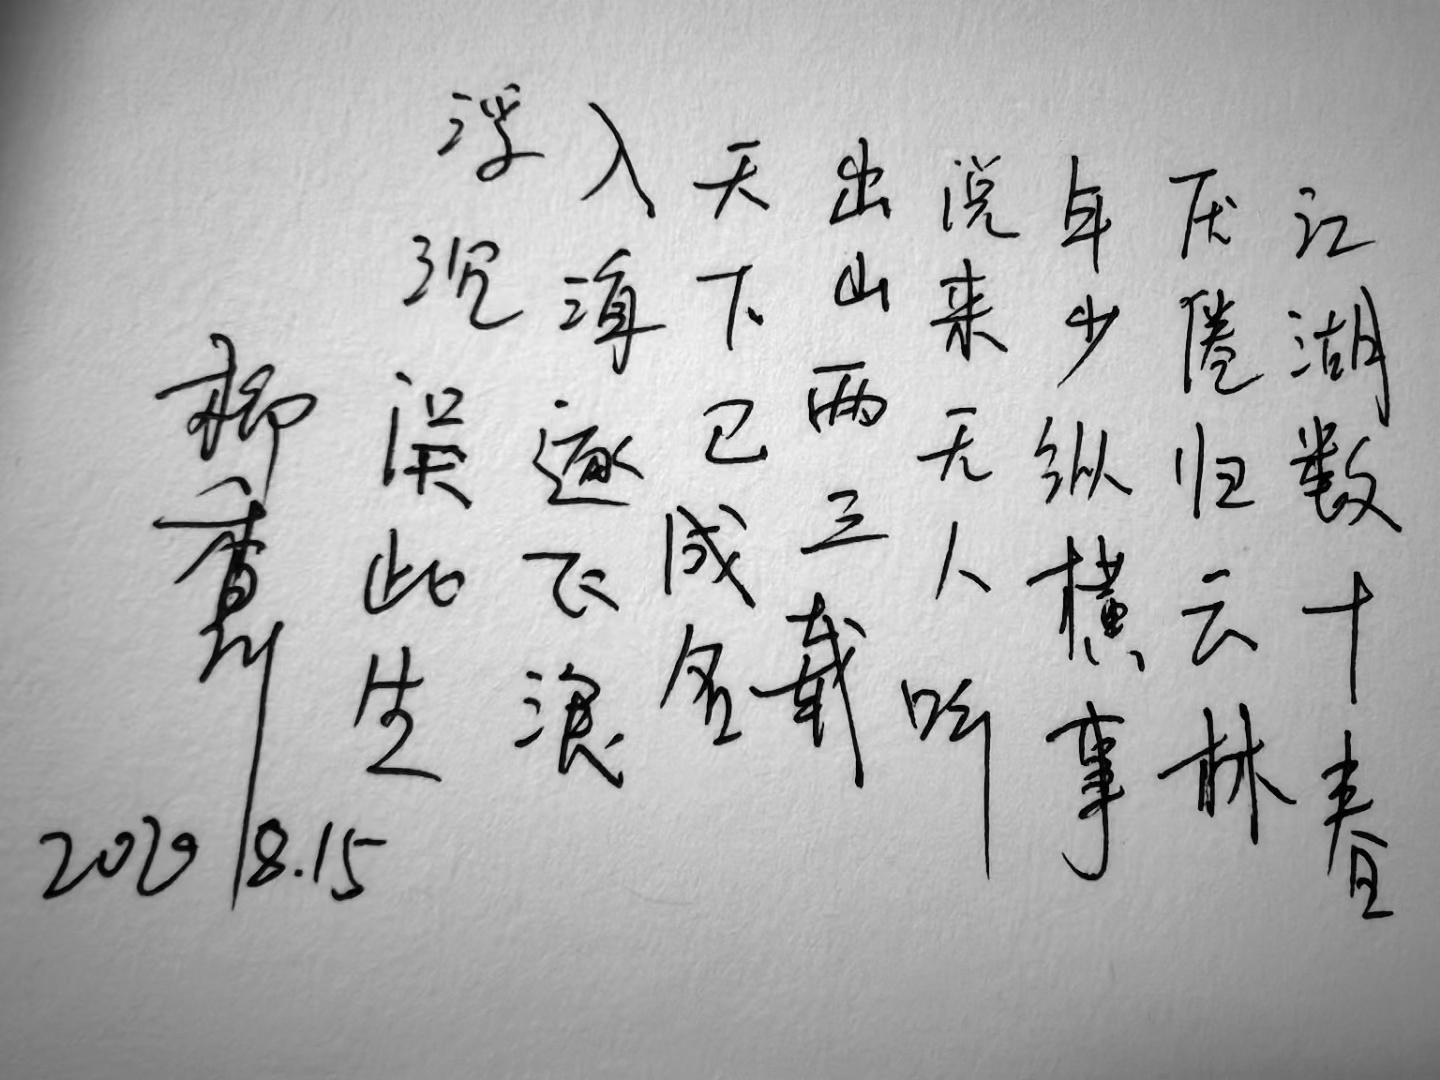 江湖数十春
厌倦归云林
年少纵横事
说来无人听
出山两三载
天下已成名
入海逐飞浪
浮沉误此生
柳
2020.8.15